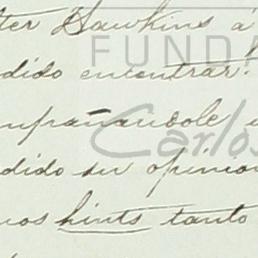 ter Hawkins a
FUNDA
dido encontrar.
mpañandole
Carlos
dido su opinion
nos hints tanto